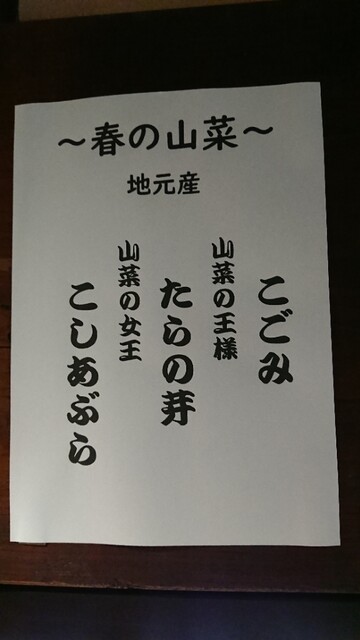 ～春の山菜～
地元産
こごみ
山菜の王様
たらの芽
山菜の女王
こしあぶら